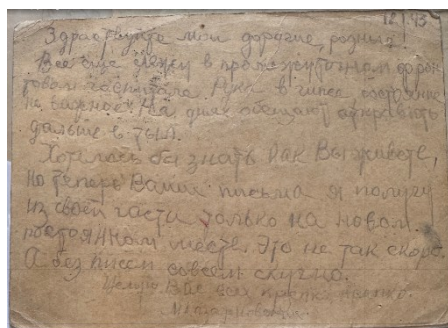 12/I 43
Здраствуйте мои дорогие, родные!
Все еще лежу в промежуточном фронтовом госпитале. Рука в гипсе состояние
не важное. На днях обещают отправить
дальше в тыл.
Хотелось бы знать как Вы живете,
но теперь Ваши письма я получу
из своей части только на новом
постоянном месте. Это не так скоро.
А без писем совсем скучно.
Целую Вас всех крепко